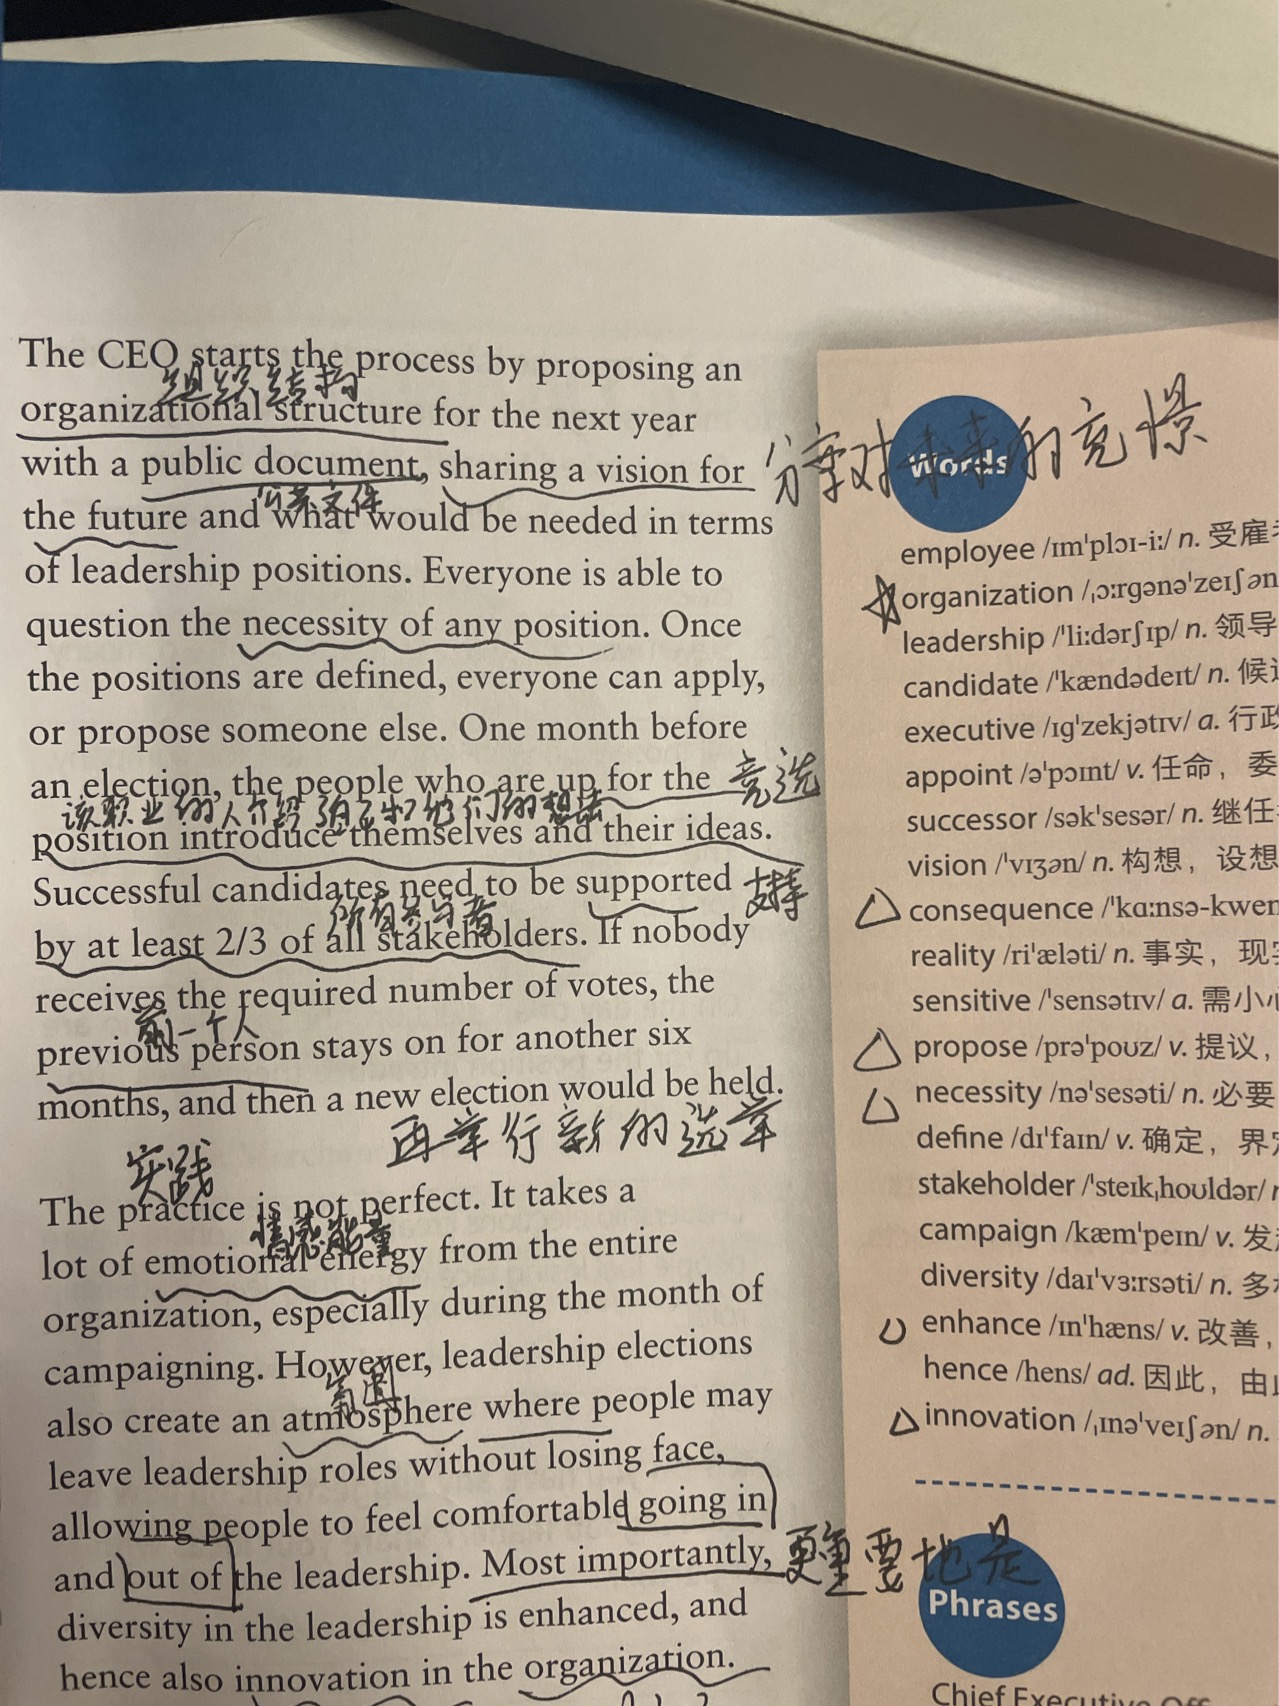 The CEO starts the process by proposing an
组织结构
organizational structure for the next year
with a public document, sharing a vision for
分享对未来的充憬
公共文件
the future and what would be needed in terms
of leadership positions. Everyone is able to
question the necessity of any position. Once
the positions are defined, everyone can apply,
or propose someone else. One month before
an election, the people who are up for the
竞选
该职业的人介绍自己和他们的想法
position introduce themselves and their ideas.
Successful candidates need to be supported
支持
by at least 2/3 of all stakeholders. If nobody
receives the required number of votes, the
前一个人
previous person stays on for another six
months, and then a new election would be held.
再举行新的选举
实践
The practice is not perfect. It takes a
情感能量
lot of emotional energy from the entire
organization, especially during the month of
campaigning. However, leadership elections
氛围
also create an atmosphere where people may
leave leadership roles without losing face,
allowing people to feel comfortable going in
and out of the leadership. Most importantly,
更重要地是
diversity in the leadership is enhanced, and
hence also innovation in the organization.
Words
employee /ɪmˈplɔɪ-iː/ n. 受雇
organization /ˌɔːrɡənəˈzeɪʃən
leadership /ˈliːdərʃɪp/ n. 领导
candidate /ˈkændədeɪt/ n. 候
executive /ɪɡˈzekjətɪv/ a. 行政
appoint /əˈpɔɪnt/ v. 任命，委
successor /səkˈsesər/ n. 继任
vision /ˈvɪʒən/ n. 构想，设想
consequence /ˈkɑːnsə-kwen
reality /riˈæləti/ n. 事实，现
sensitive /ˈsensətɪv/ a. 需小
propose /prəˈpoʊz/ v. 提议，
necessity /nəˈsesəti/ n. 必要
define /dɪˈfaɪn/ v. 确定，界
stakeholder /ˈsteɪkˌhoʊldər/
campaign /kæmˈpeɪn/ v. 发
diversity /daɪˈvɜːrsəti/ n. 多
enhance /ɪnˈhæns/ v. 改善，
hence /hens/ ad. 因此，由
innovation /ˌɪnəˈveɪʃən/ n.
Phrases
Chief Executive Off